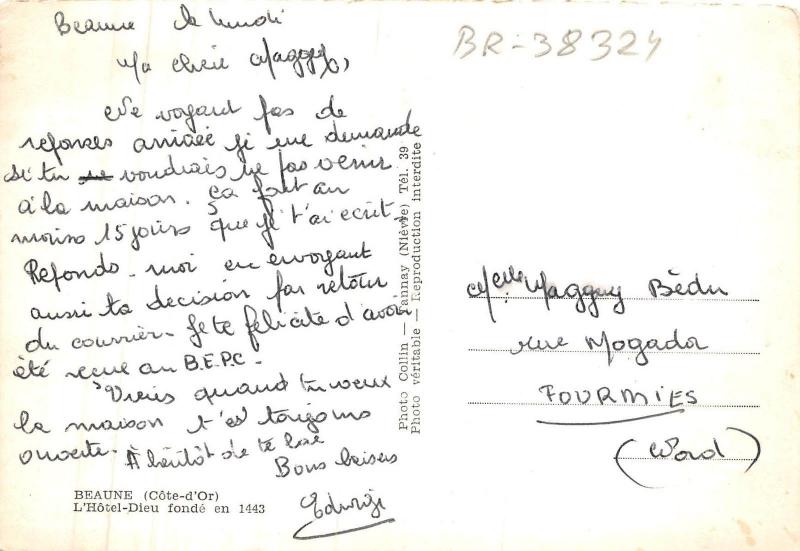 Beaune le lundi
Ma chérie Maggy,
Ne voyant pas de
réponses arrivée je me demande
si tu voudrais ne pas venir
à la maison. ça fait au
moins 15 jours que je t'ai écrit
Réponds-moi en envoyant
aussi ta décision par retour
du courrier. Je te félicite d'avoir
été reçue au B.E.P.C.
Viens quand tu veux
la maison t'est toujours
ouverte. À bientôt de te lire
Bons baisers
Edwige
BEAUNE (Côte-d'Or)
L'Hôtel-Dieu fondé en 1443
Photo Collin — Tannay (Nièvre) Tél. 39
Photo véritable — Reproduction interdite
BR-38324
Melle Maggy Bédu
rue Mogador
FOURMIES
(Nord)